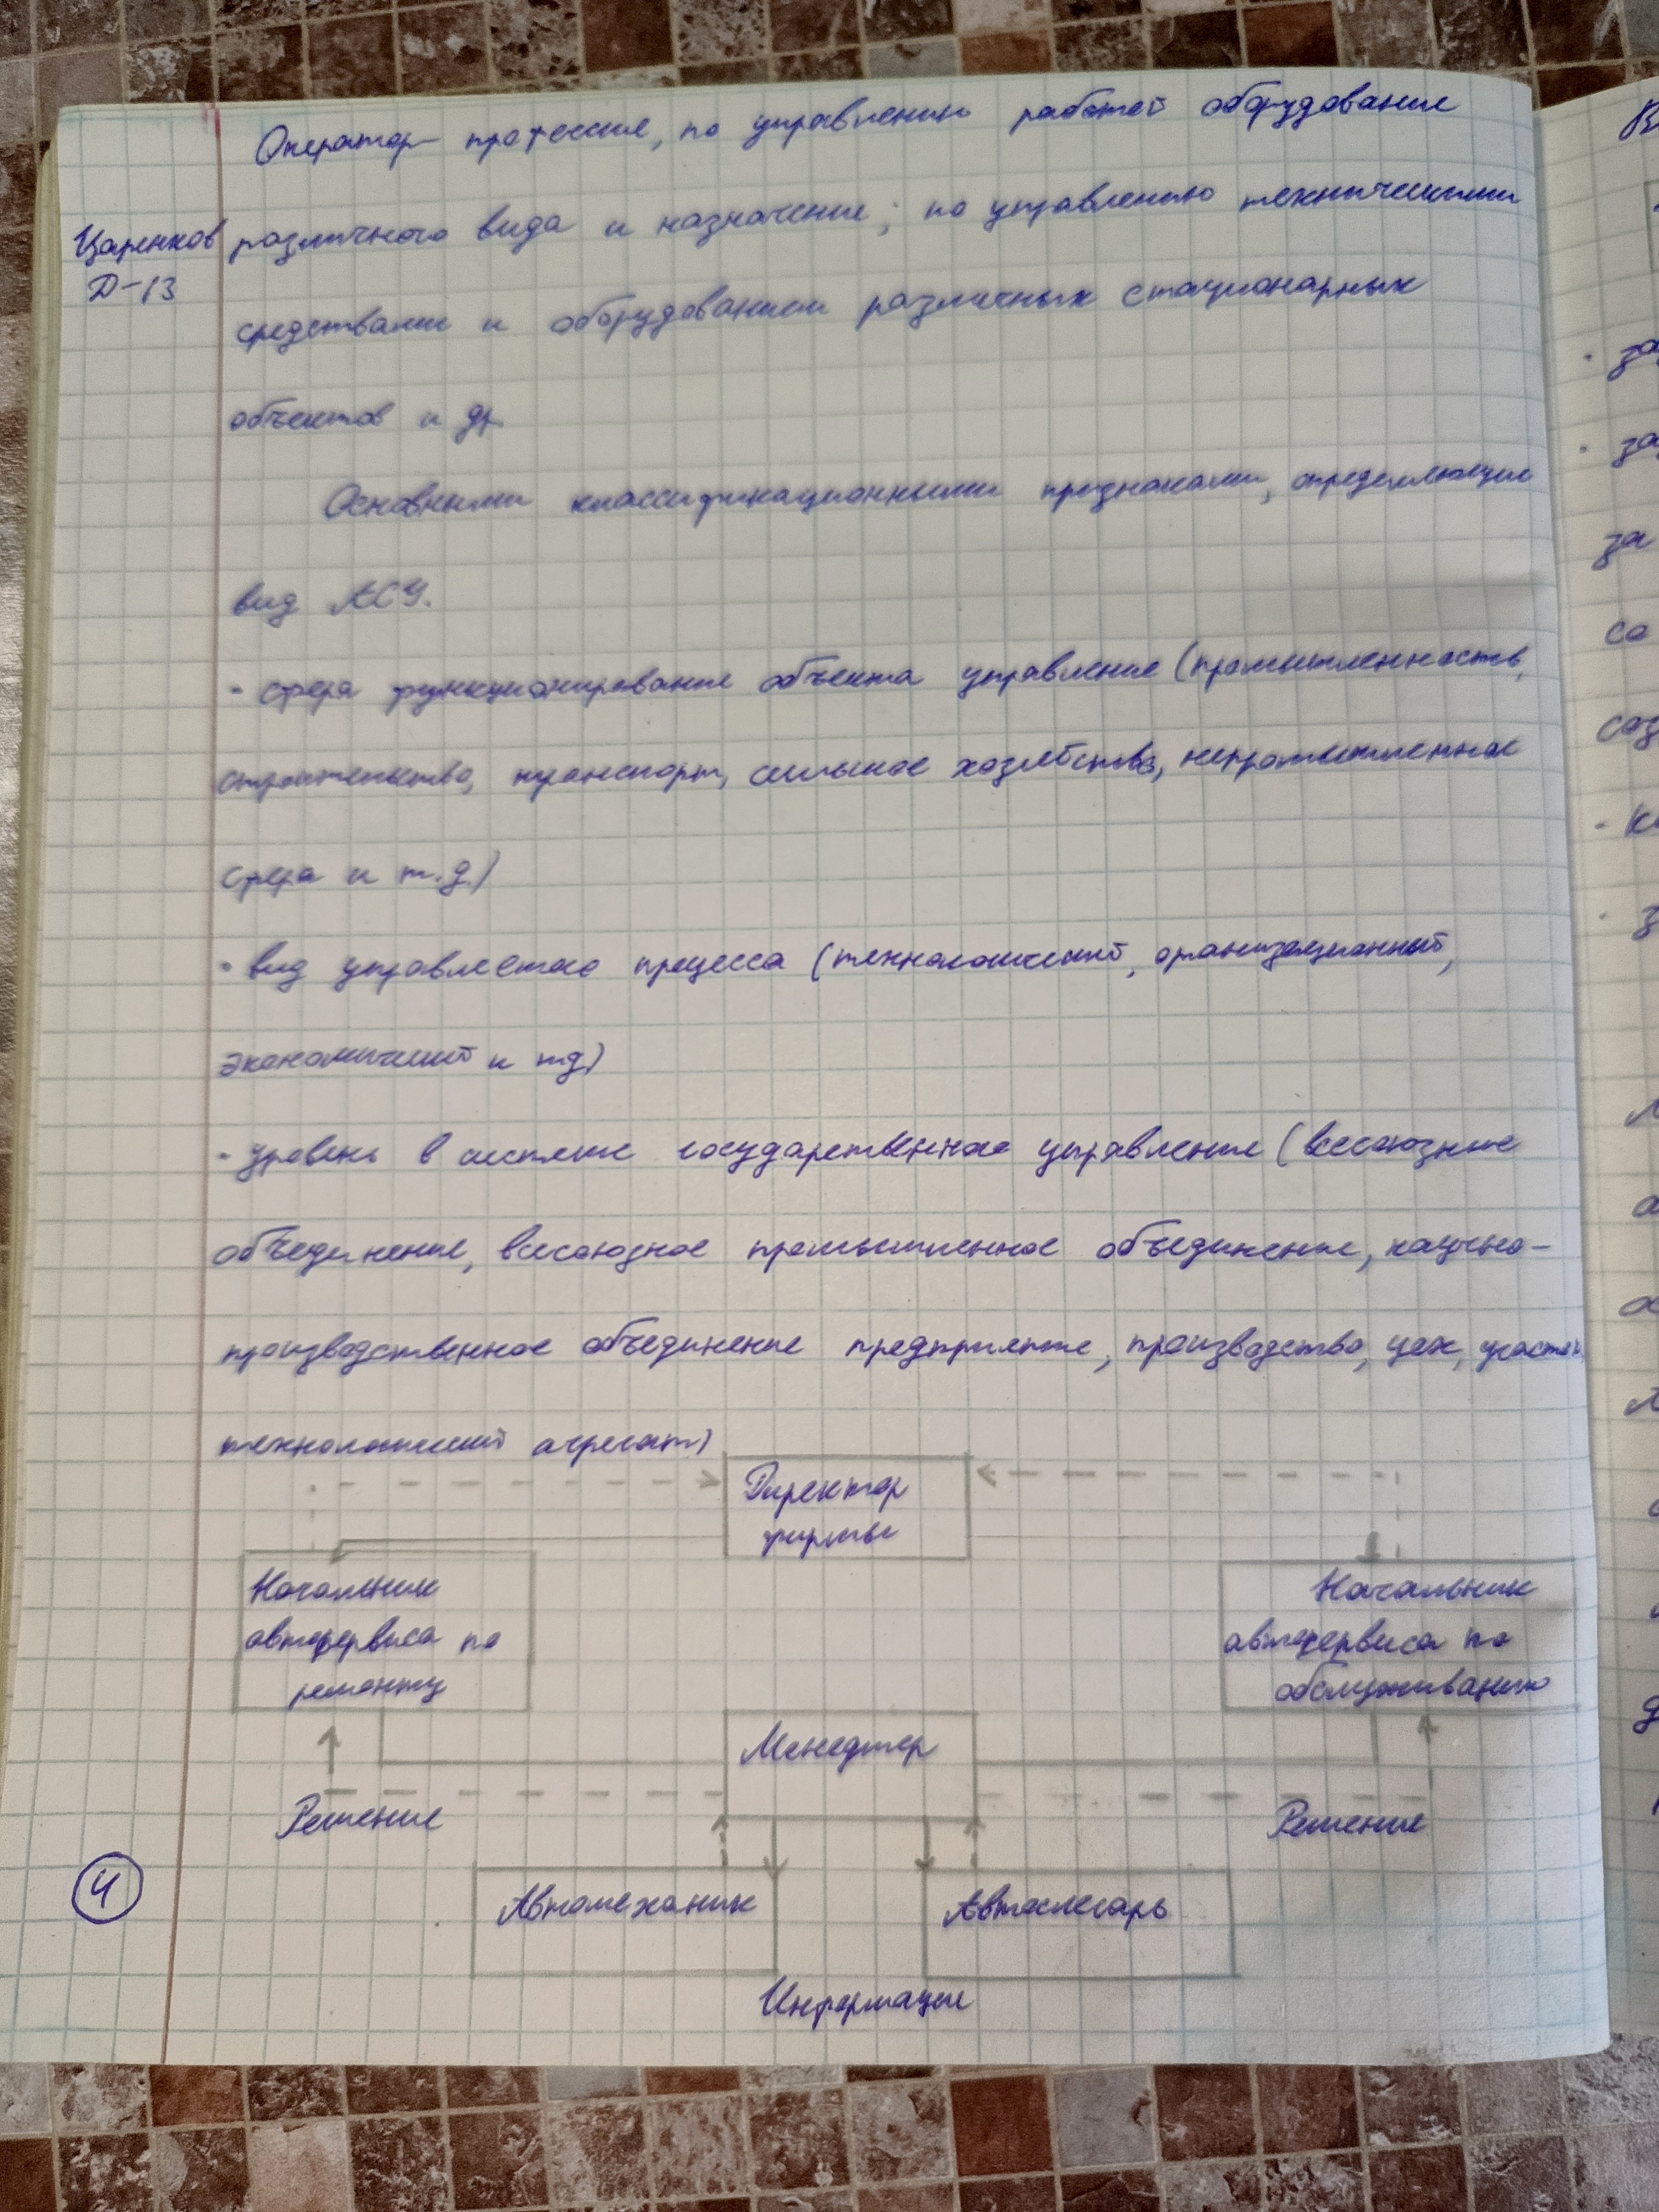 Оператор- профессия, по управлению работой оборудование
Царенков
Д-13
различного вида и назначение; по управлению техническими
средствами и оборудованием различных стационарных
объектов и др.
Основными классификационными признаками, определяющие
вид АСУ.
- сфера функционирование объекта управление (промышленность,
строительство, транспорт, сельское хозяйство, непромышленное
сфера и т.д.)
- вид управляемого процесса (технологический, организационный,
экономический и тд)
- уровень в системе государственное управление (всесоюзные
объединение, всесоюзное промышленное объединение, научно-
производственное объединение предприятие, производство, цех, участок,
технологический агрегат)
Директор
фирмы
Начальник
автосервиса по
ремонту
Начальник
автосервиса по
обслуживанию
Менеджер
Решение
Решение
4
Автомеханик
Автослесарь
Информация
В
за
за
за
со
соз